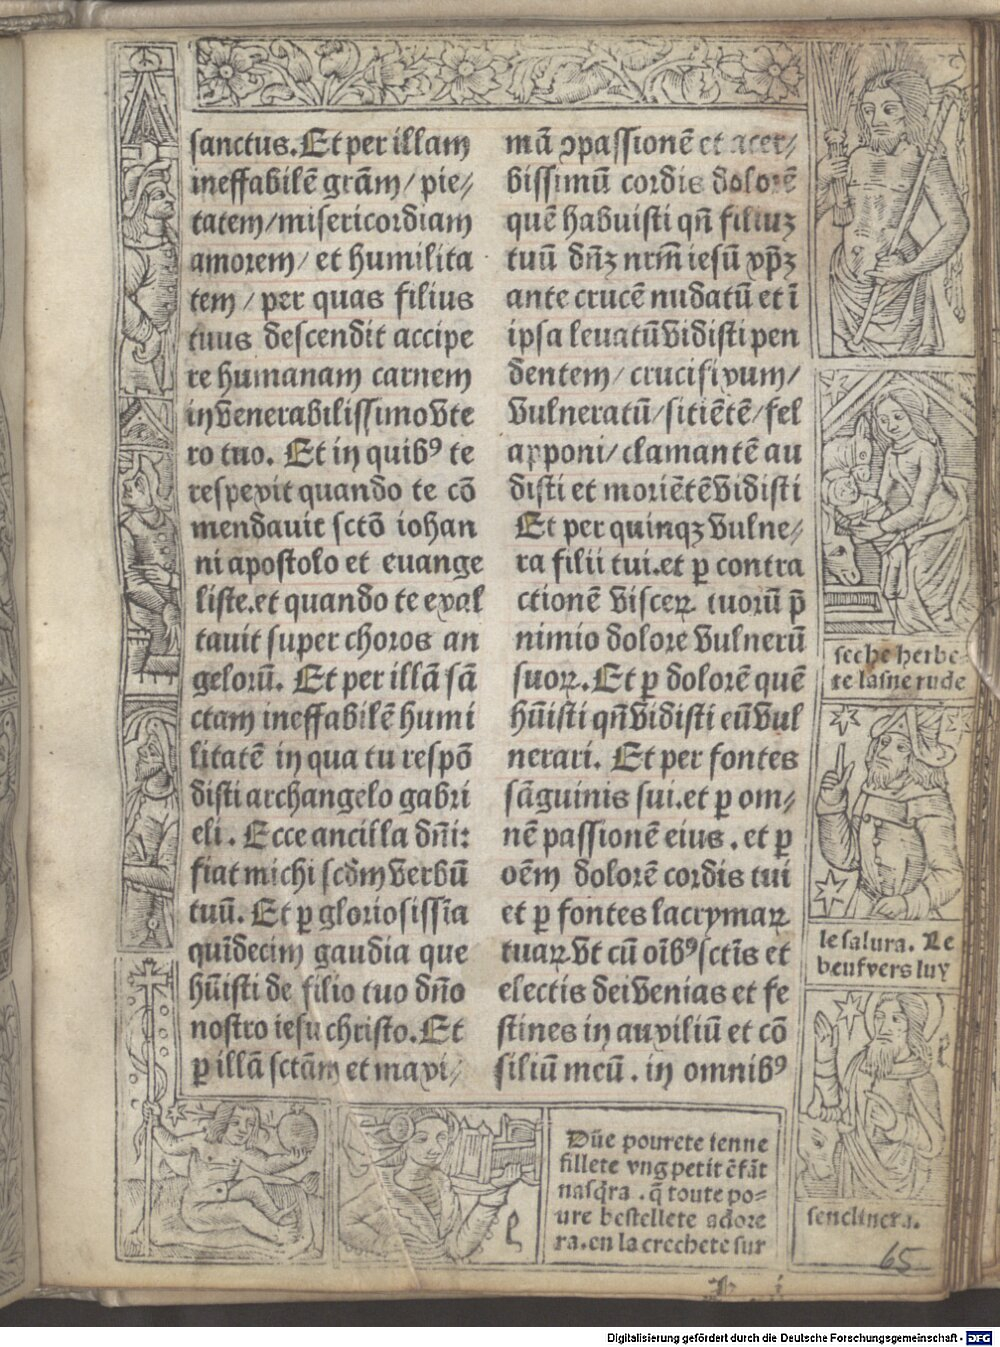 sanctus. Et per illam
ineffabilē grām / pie⸗
tatem / misericordiam
amorem / et humilita
tem / per quas filius
tuus descendit accipe
re humanam carnem
in venerabilissimo vte
ro tuo. Et in quibꝰ te
respexit quando te cō
mendauit sctō iohan
ni apostolo et euange
liste. et quando te exal
tauit super choros an
gelorū. Et per illā sā
ctam ineffabilē humi
litatē in qua tu respō
disti archangelo gabri
eli. Ecce ancilla dñi:
fiat michi scd̄m verbū
tuū. Et ꝑ gloriosissīa
quīdecim gaudia que
hūisti de filio tuo dño
nostro iesu christo. Et
ꝑ illā sctām et maxi⸗
mā ꝯpassionē et acer⸗
bissimū cordis dolorē
quē habuisti qñ filiuꝫ
tuū dñꝫ nrm̄ iesū xp̄ꝫ
ante crucē nudatū et ī
ipsa leuatū vidisti pen
dentem / crucifixum /
vulneratū / sitiētē / fel
apponi / clamantē au
disti et moriētē vidisti
Et per quinqꝫ vulne⸗
ra filii tui. et ꝑ contra
ctionē visceꝝ tuorū p̄
nimio dolore vulnerū
suoꝝ. Et ꝑ dolorē quē
hūisti qñ vidisti eū vul
nerari. Et per fontes
sāguinis sui. et ꝑ om⸗
nē passionē eius. et ꝑ
oēm dolorē cordis tui
et ꝑ fontes lacrymaꝝ
tuaꝝ. vt cū oībꝰ sctīs et
electis dei venias et fe
stines in auxiliū et cō
siliū meū. in omnibꝰ
Dūe pourete ienne
fillete vng petit ēfāt
nasq̄ra. q̄ toute po⸗
ure bestellete adore
ra. en la crechete sur
seche herbe⸗
te lasne rude
le salura. Le
beuf vers luy
senclinera.
65
Digitalisierung gefördert durch die Deutsche Forschungsgemeinschaft - DFG